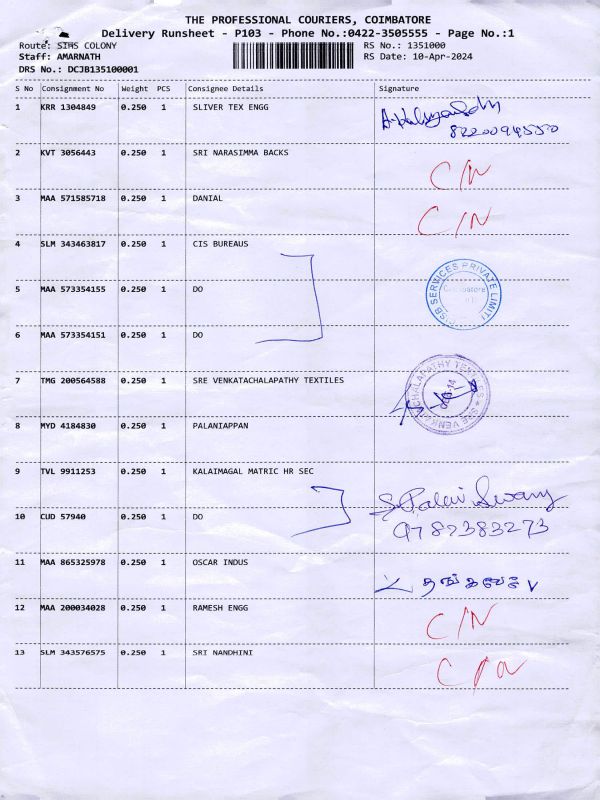 THE PROFESSIONAL COURIERS, COIMBATORE
Delivery Runsheet - P103 - Phone No.:0422-3505555 - Page No.:1
Route: SIHS COLONY RS No.: 1351000
Staff: AMARNATH RS Date: 10-Apr-2024
DRS No.: DCJB135100001
S No Consignment No Weight PCS Consignee Details Signature
1 KRR 1304849 0.250 1 SLIVER TEX ENGG
2 KVT 3056443 0.250 1 SRI NARASIMMA BACKS C/N
3 MAA 571585718 0.250 1 DANIAL C/N
4 SLM 343463817 0.250 1 CIS BUREAUS
5 MAA 573354155 0.250 1 DO SERVICES PRIVATE Coimbatore
6 MAA 573354151 0.250 1 DO
7 TMG 200564588 0.250 1 SRE VENKATACHALAPATHY TEXTILES
8 MYD 4184830 0.250 1 PALANIAPPAN
9 TVL 9911253 0.250 1 KALAIMAGAL MATRIC HR SEC
10 CUD 57940 0.250 1 DO
11 MAA 865325978 0.250 1 OSCAR INDUS
12 MAA 200034028 0.250 1 RAMESH ENGG C/N
13 SLM 343576575 0.250 1 SRI NANDHINI C/N